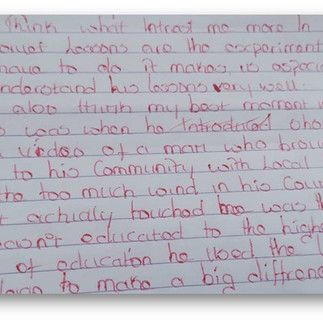 Think what intrast me more In
Lessons are the experiment
to do it makes us especia
nderstand his lessons very well.
also think my best marment w
was when he Introdured sho
a vindeo of a man who brou
to his Community with Local
to too much wind in his Cou
actually touched was th
educated to the high
of educaton he used the
to make a big diffrenc